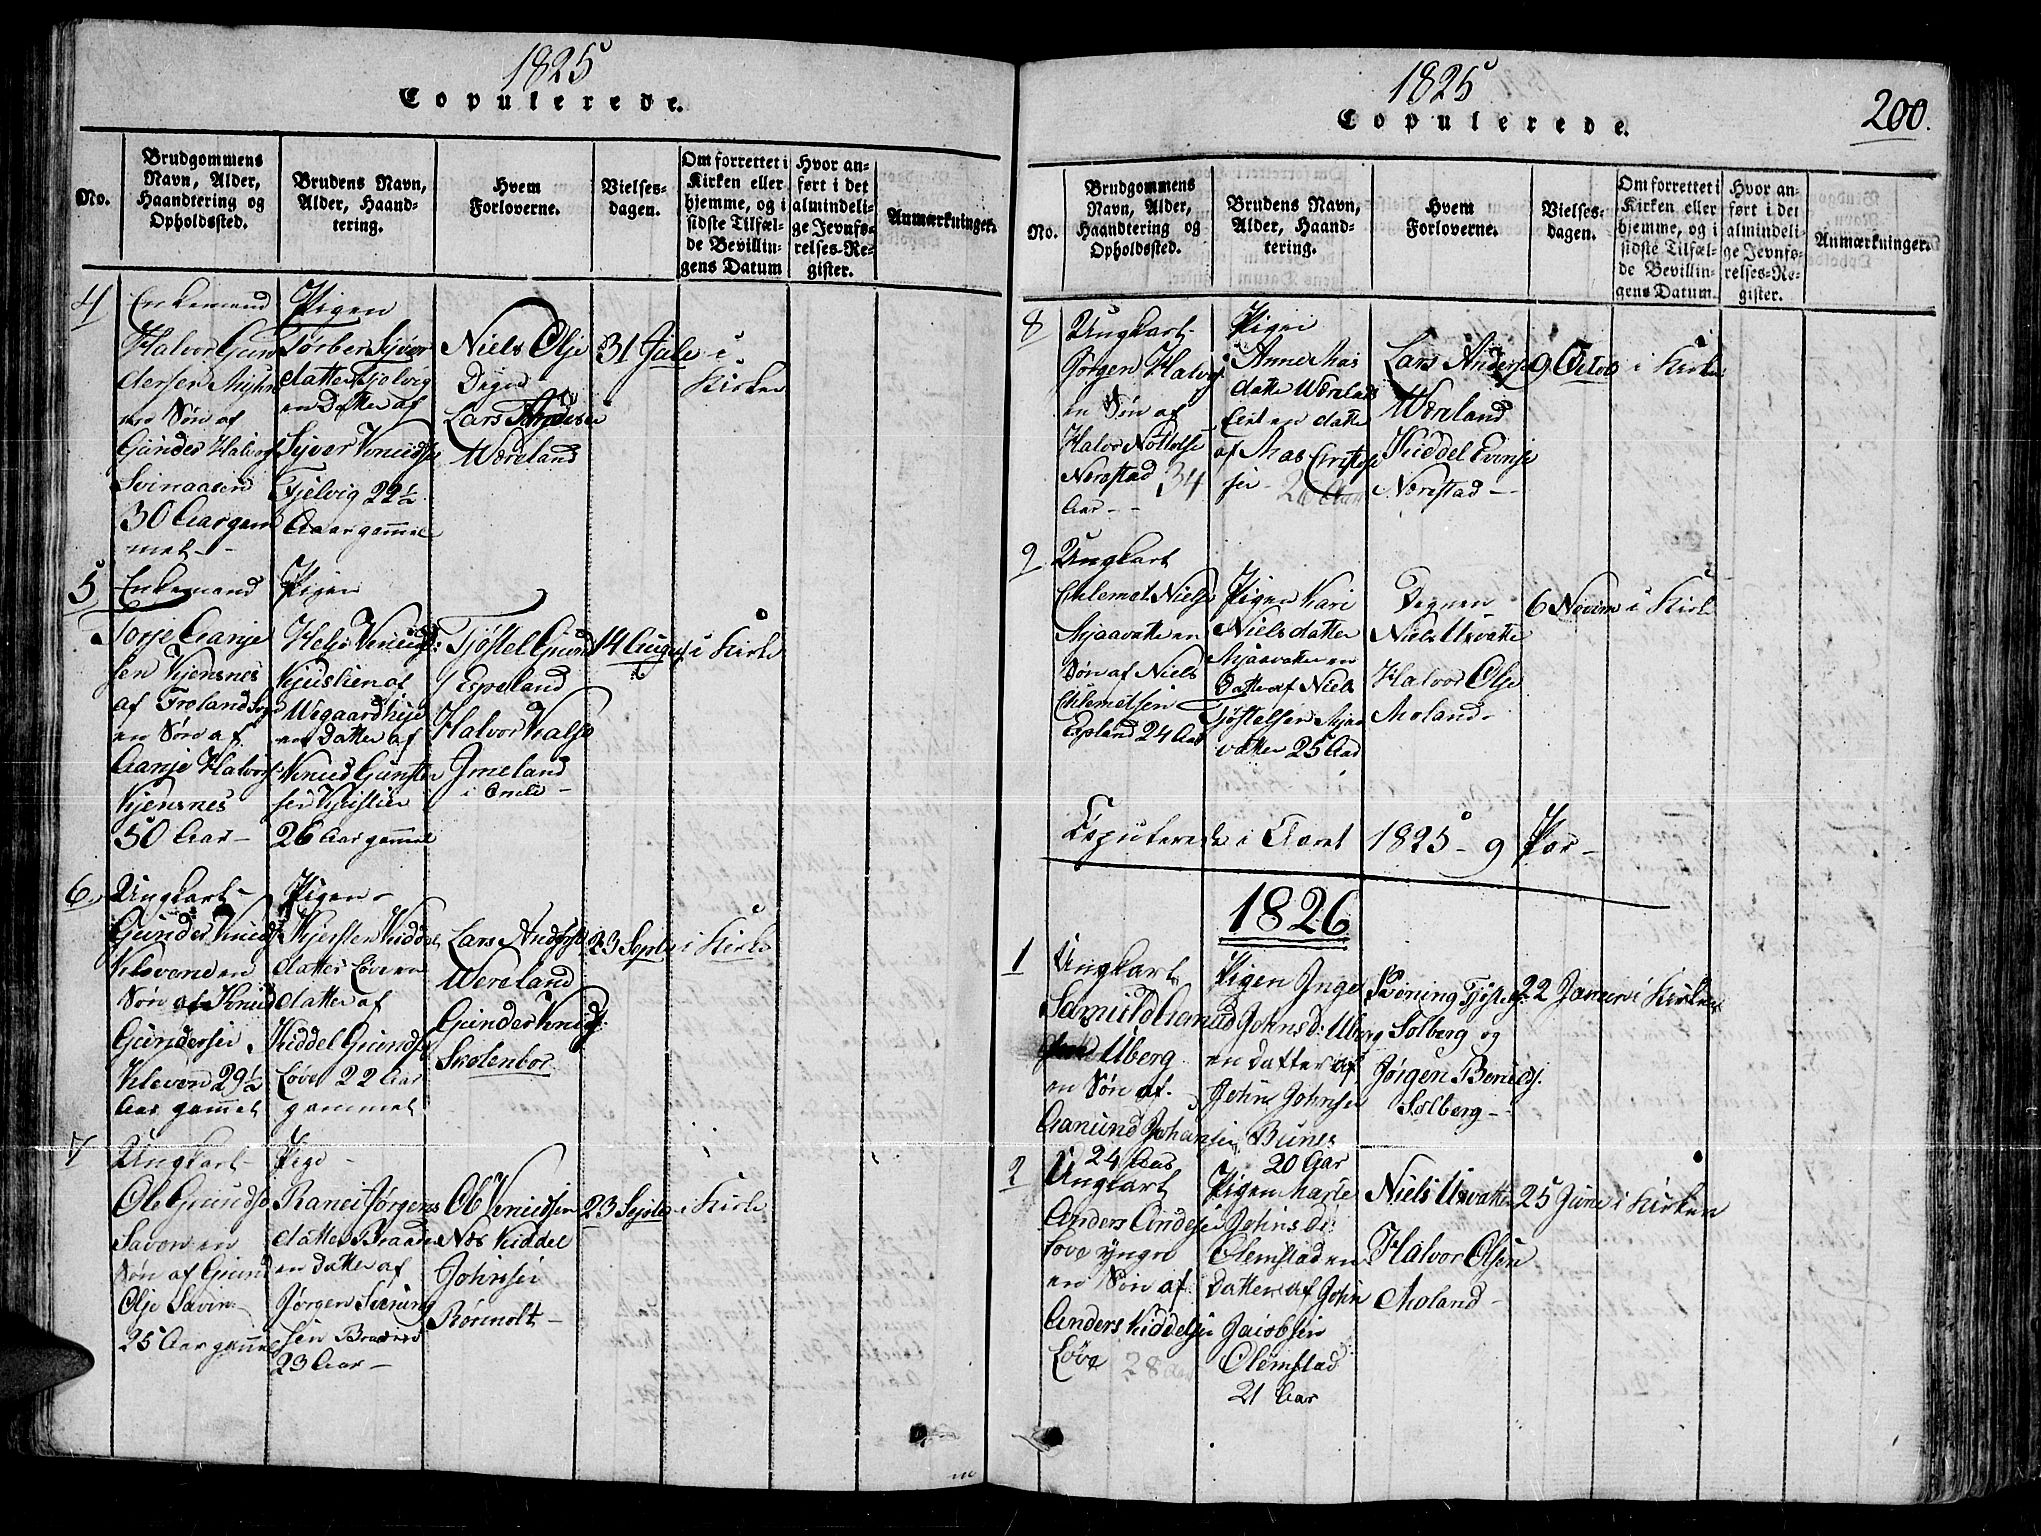 1825
Copulerede.
No.
Brudgommens Navn, Alder, Haandtering og Opholdssted.
Brudens Navn, Alder, Haandtering.
Hvem Forloverne.
Vielsesdagen.
Om forrettet i Kirken eller hjemme, og i sidste Tilfælde Bevillingens Datum
Hvor anført i det almindelige Jevnførelses-Register.
Anmærkninger.
4
Enkemand
Halvor Gun
dersen
en Søn af
Gunder Halvors
Svinaasen
30 Aar gam
mel
Pigen
Torber Sjver
datter Fjelvig
en Datter af
Sjver Knuds
Fjelvig 22½
Aar gammel
Niels Olse
Lars Anderse
Wæreland
31 Jule
i
Kirken
5
Enkemand
Torje Aanje
sen Kjensnes
af Froland Sogn
en Søn af
Aanje Halvors
Kjensnes
50 Aar
Pigen
Helje Knuds
af
en Datter af
Knud Gunste
sen
26 Aar gammel
Tjøstel Gund
Espeland
Halvor Kalse
Jmeland
i Omli
14 August
i Kirke
6
Ungkarl
Gunder Knuds
Klevene en
Søn af Knud
Gundersen
Kleven 29½
Aar gammel
Pigen
Kjersten Kiddel
datter Løve en
datter af
Kiddel Gunds
Løve 22 Aar
gammel
Lars Anderse
Wereland
Gunder Knuds
Skolenbor
23 Septe
i Kirke
7
Ungkarl
Ole Gunds
Saven en
Søn af Gund
Olse Savin
25 Aar gamme
Pige
Ranei Jørgens
datter Braaen
en Datter af
Jørgen Svening
sen
23 Aar
Ole Knudsen
Næs Kiddel
Johnsen
Rønnolt
23 Septe
i Kirke
1825
Copulerede.
200.
No.
Brudgommens Navn, Alder, Haandtering og Opholdssted.
Brudens Navn, Alder, Haandtering.
Hvem Forloverne.
Vielsesdagen.
Om forrettet i Kirken eller hjemme, og i sidste Tilfælde Bevillingens Datum.
Hvor anført i det almindelige Jevnførelses-Register.
Anmærkninger.
8
Ungkarl
Jørgen Halvors
en Søn af
Halvor
Nerestad 34
Aar
Pigen
Anne Mas
datte Wæreland
en datte
af Mas
sen 26 Aar
Lars Anderse
Wæreland
Kiddel Evense
Nærestad
9 Octob
i Kirke
9
Ungkarl
Chlemet Nielse
Mjaavatte en
Søn af Niels
Chlemetsen
Espland 24 Aar
Pigen Kari
Nielsdatter
Mjaavatte en
Datte af Niels
Tjøstelsen Mjaa
vatte 25 Aar
Degnen
Niels Usvatte
Halvor Olse
Moland
6 Novem
i Kirke
Copulerede i Aaret 1825 - 9 Par
1826
1
Ungkarl
Samuld Aanund
Uberg
en Søn af
Aanund Johansen
24 Aar
Pigen Inge
Johns D: Uberg
en datter af
John Johnsen
Bunes
20 Aar
Svening Tjøstels
Solberg og
Jørgen
Solberg
22 Januar
i Kirken
2
Ungkarl
Anders Andersen
Løve yngre
en Søn af
Anders Kiddelsen
Løve 28 Aar
Pigen Marte
Johns D:
Olemstad en
Datter af John
Jacobsen
Olemstad
21 Aar
Niels Usvatte
Halvor Olsen
Moland
25 June
i Kirken